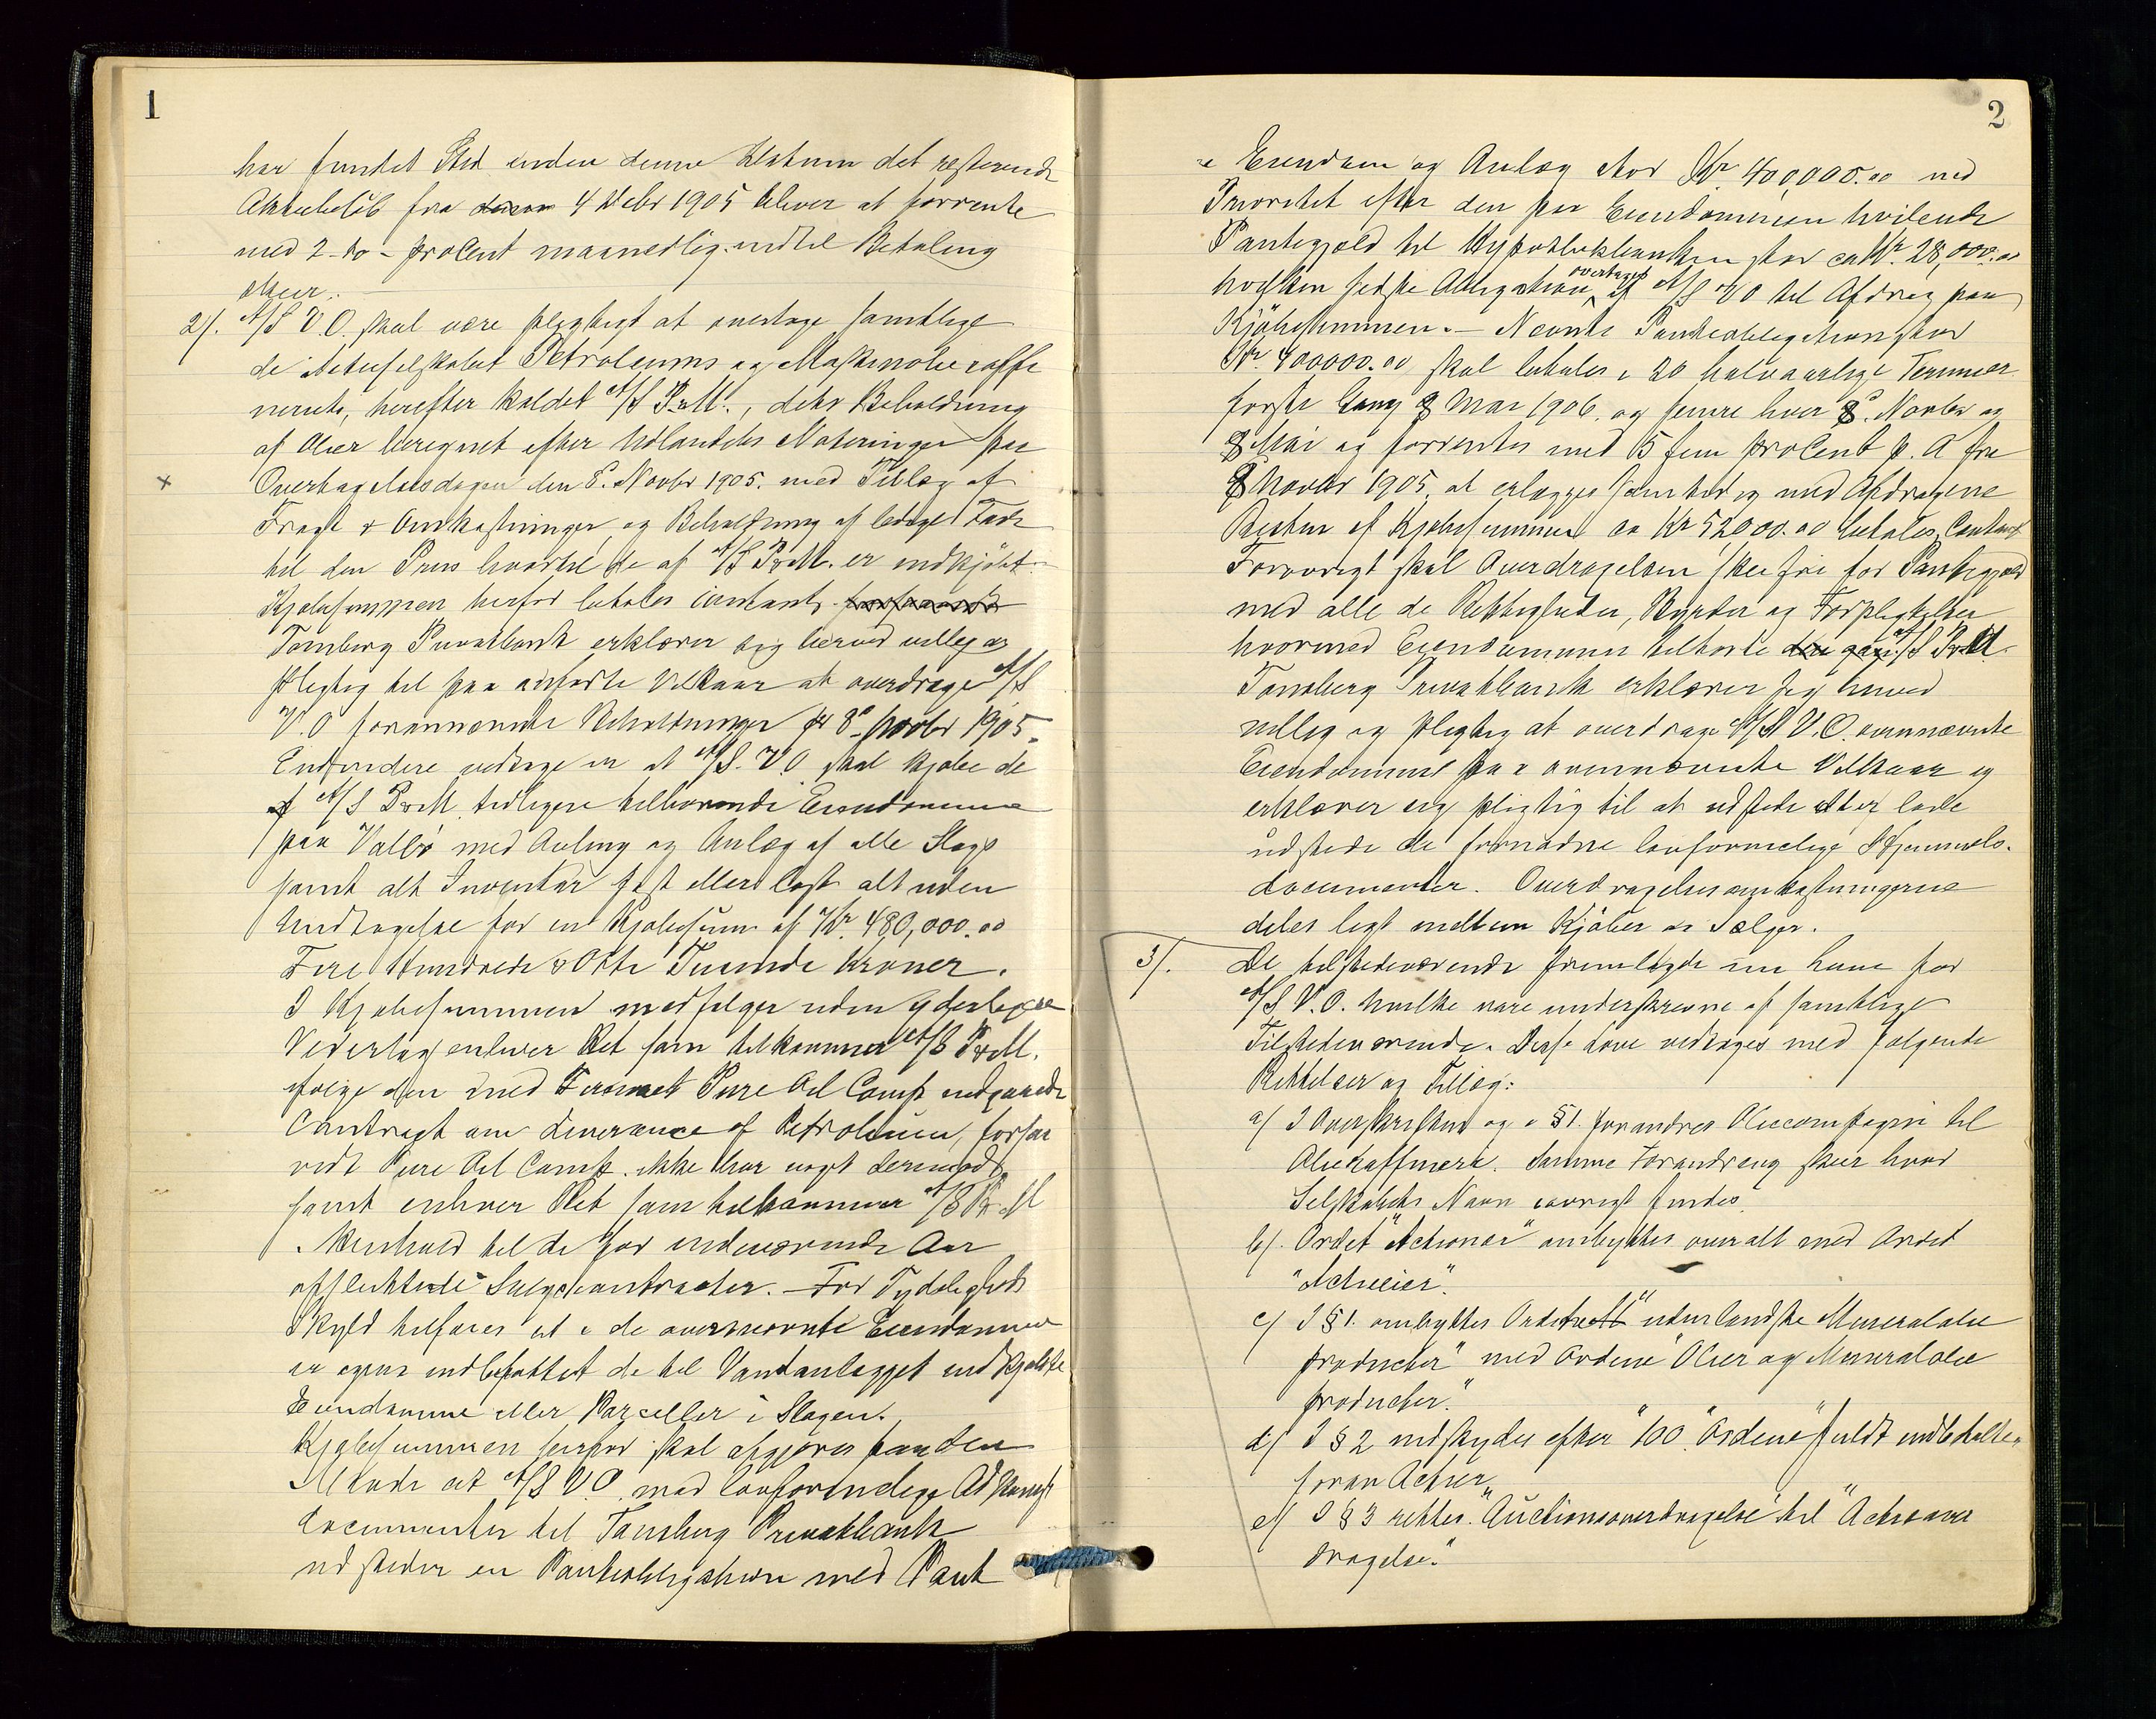 1
har fundet Sted inden denne Datum det resterende
Aktiebeløb fra 4 Debr 1905 bliver at forrente
med 2 - to - procent maanedlig indtil Betaling
skeer.
2/. A/S V.O. skal være pligtigt at overtage samtlige
de Actieselskabet Petroleums og Maskinolieraffi
neriets, herefter kaldet A/S P&M., dets Beholdning
af Olier beregnet efter Udlandets Noteringer paa
Overtagelsesdagen den 8. Novbr 1905. med Tillæg af
Fragt & Omkostninger og Beholdning af ledige Fade
til den Priis hvortil de af A/S P&M. er indkjøbt.
Kjøbesummen herfor betales contant.
Tønsberg Privatbank erklærer sig herved villig og
pligtig til paa anførte Vilkaar at overdrage A/S
V.O forannævnte Beholdninger pr 8 Novbr 1905.
Endvidere vedtages at A/S. V.O. skal kjøbe de
A/S P&M. tidligere tilhørende Eiendomme
paa Valløy med Anlæg af alle Slags
samt alt Inventar fast eller løst alt uden
Undtagelse for en Kjøbesum af Kr. 480,000.00
Fire Hundrede & Otti Tusinde Kroner.
I Kjøbesummen medfølger uden yderligere
Vederlag enhver Ret som tilkommer A/S P&M.
ifølge den med Firmaet Pure Oil Comp indgaaede
Contragt om Leverance af Petroleum, forsaa
vidt Pure Oil Comp. ikke har noget derimod,
samt enhver Ret som tilkommer A/S P&M
i Henhold til de for indeværende Aar
afsluttede Salgscontracter. - For Tydeligheds
Skyld tilføies at i de ovennævnte Eiendomme
er ogsaa indbefattet de til Vandanlægget indkjøbte
Eiendomme eller Parceller i Slagen.
Kjøbesummen herfor skal afgjøres paa den
Maade at A/S V.O. mod lovformelige Adkomst
documenter til Tønsberg Privatbank
udsteder en Pantobligation med Pant
2
i Eiendom og Anlæg stor Kr. 400,000.00 med
Prioritet efter den paa Eiendommen hvilende
Pantegjæld til Hypothekbanken stor ca Kr. 28,000.00
hvilken sidste Obligation overtages af A/S VO til Afdrag paa
Kjøbesummen. - Nævnte Pantobligation stor
Kr. 400000.00 skal betales i 20 halvaarlige Terminer
første Gang 8 Mai 1906. og senere hver 8. Novbr og
8 Mai og forrentes med 5 fem proCent p. A fra
8 Novbr 1905. at erlægges samtidig med Afdragene
Resten af Kjøbesummen ca Kr 52000.00 betales Contant
Forøvrigt skal Overdragelsen skee fri for Pantegjæld
med alle de Rettigheder, Byrder og Forpligtelser
hvormed Eiendommen tilhørte A/S P&M.
Tønsberg Privatbank erklærer sig herved
villig og pligtig at overdrage A/S V.O. ovennævnte
Eiendomme paa ovennævnte Vilkaar og
erklærer sig pligtig til at udstede eller lade
udstede de fornødne lovformelige Hjemmels-
documenter. Overdragelsesomkostningerne
deles ligt mellem Kjøber og Sælger.
3/. De tilstedeværende fremlagde nu Love for
A/S V.O. hvilke vare underskrevne af samtlige
Tilstedeværende. Disse Love vedtoges med følgende
Rettelser og Tillæg:
a/ I Overskriften og i §1. forandres Oliecompagni til
Olieraffineri. Samme Forandring skeer hvor
Selskabets Navn iøvrigt findes.
b/. Ordet "Actionær" ombyttes overalt med Ordet
"Actieeier".
c/ I §1. ombyttes Ordene "udenlandske Mineralolie
producter" med Ordene "Olier og Mineralolie
producter."
d/ I § 2 indskydes efter "100" Ordene "fuldt indbetalte"
foran Actier
e/ I § 3 rettes "Auctionsoverdragelse" til "Actieover
dragelse."